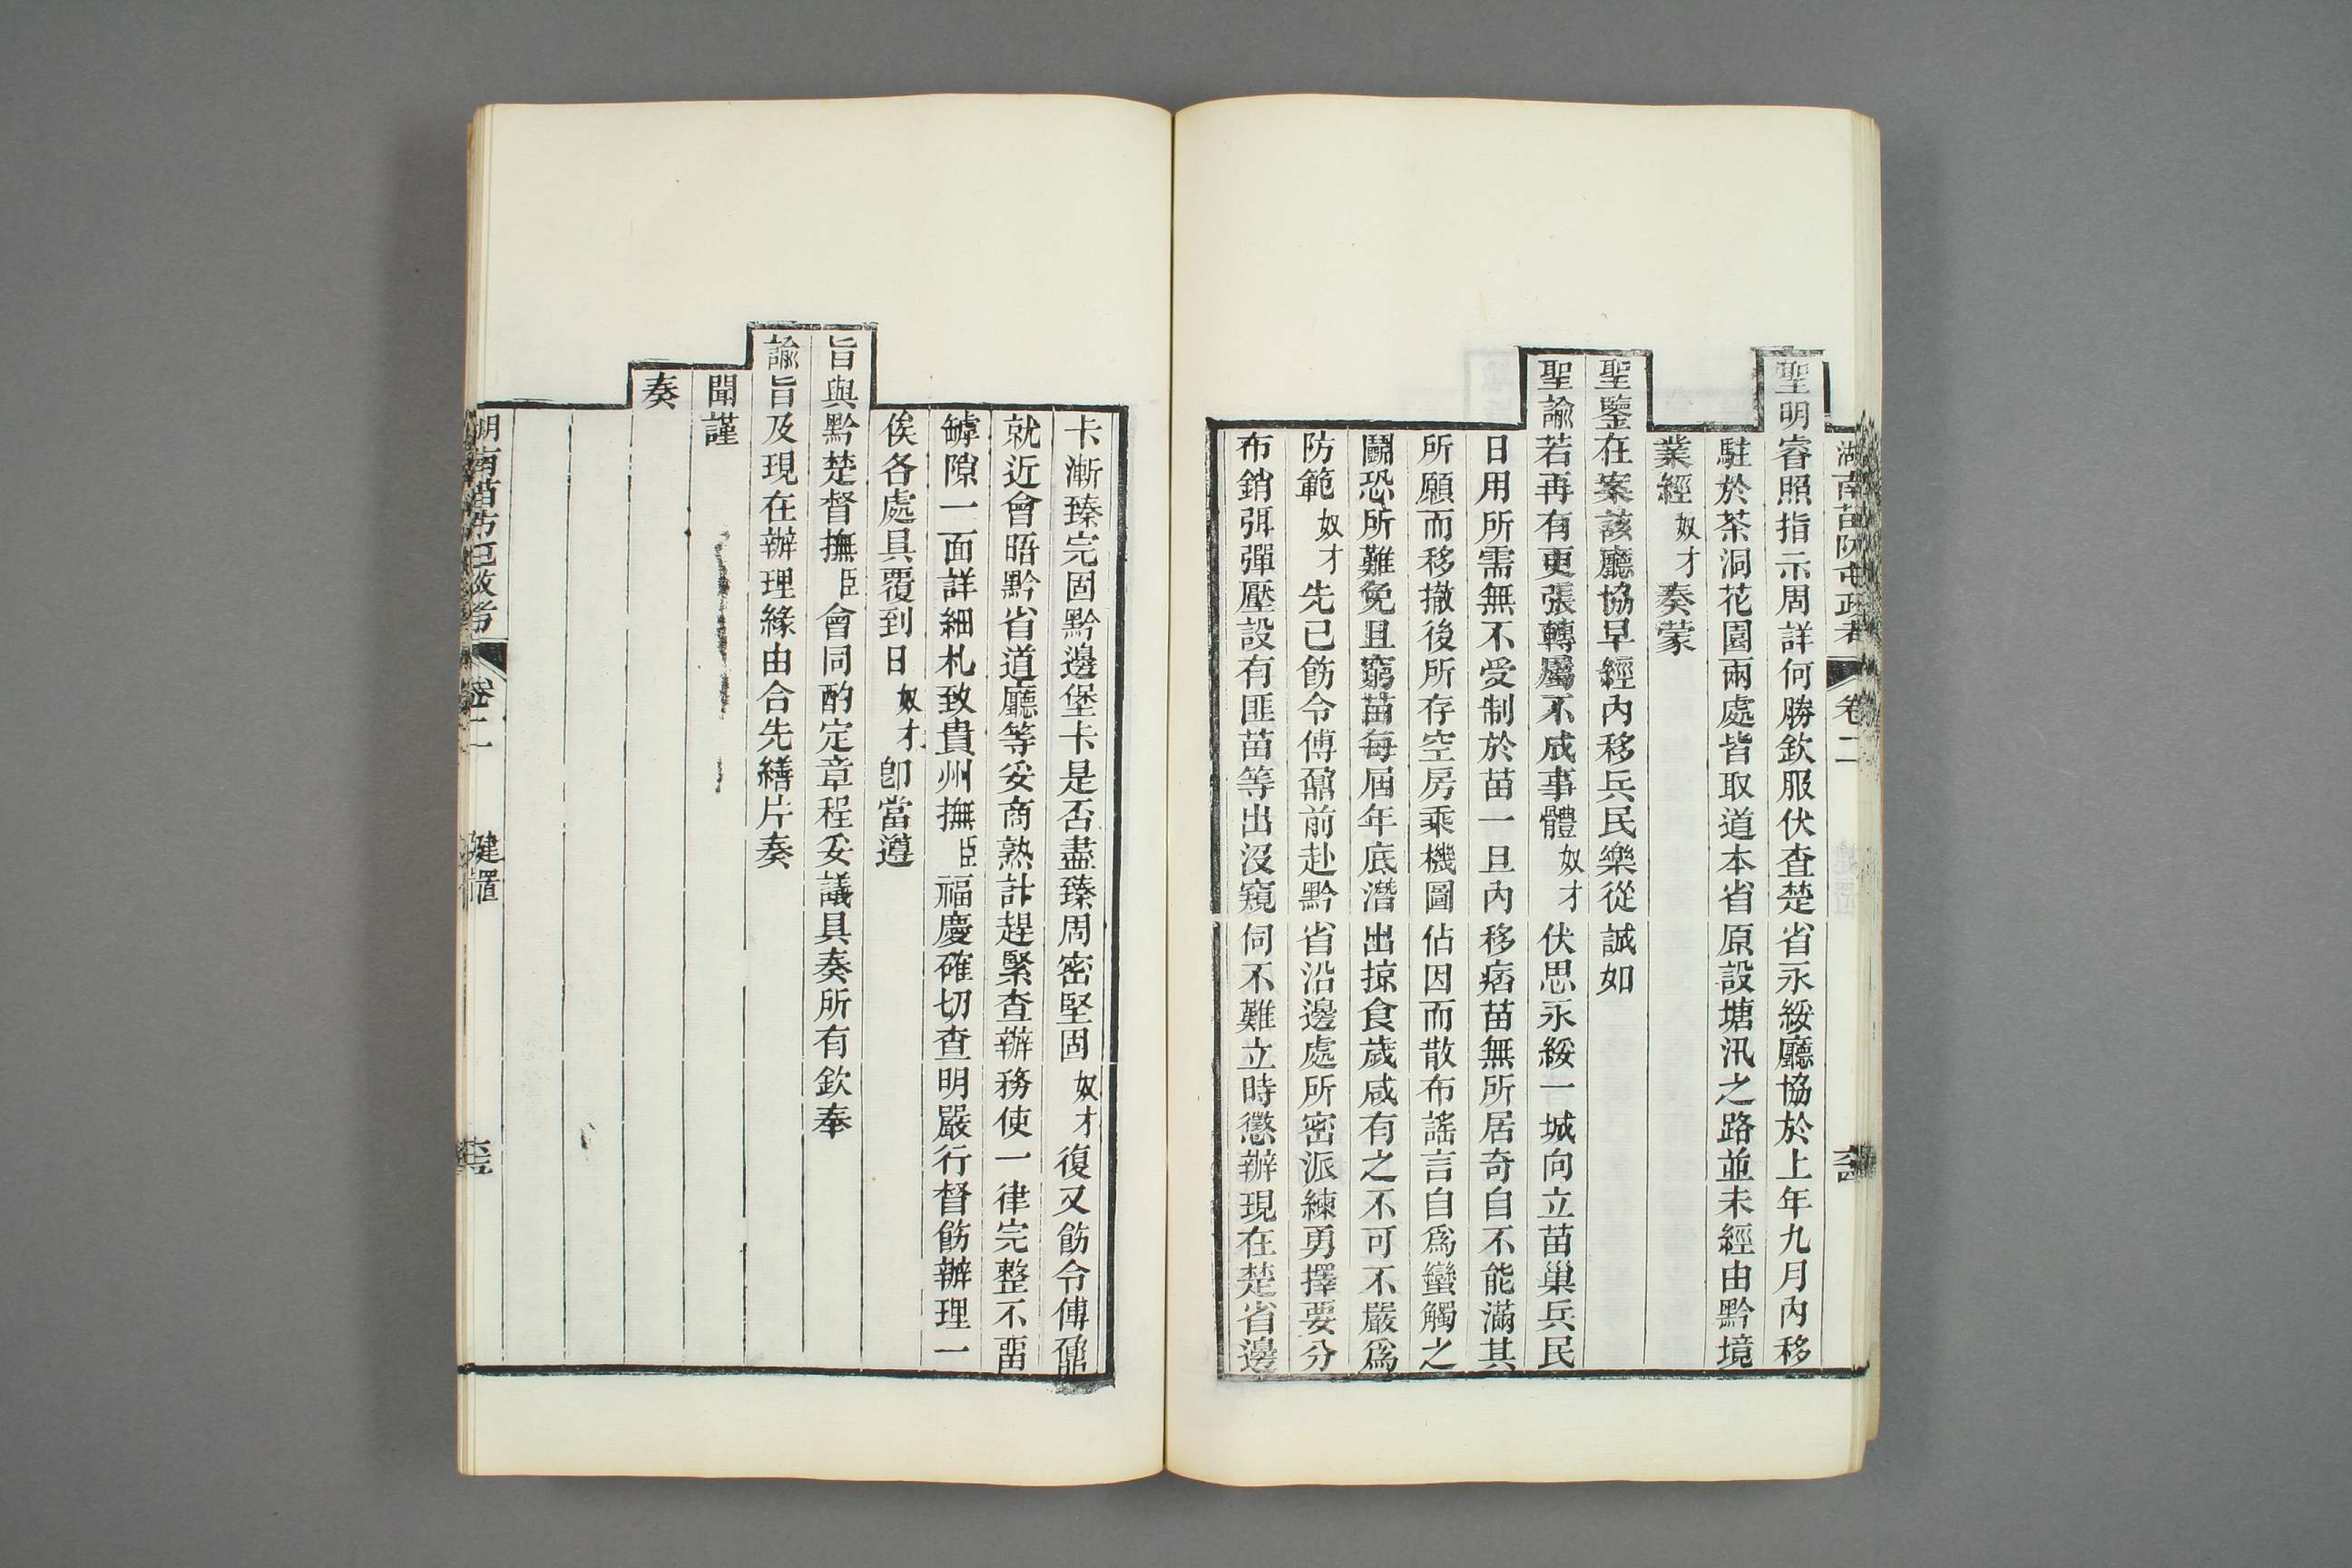 湖南苗防屯政考 卷二
聖明睿照指示周詳何勝欽服伏查楚省永綏廳協於上年九月內移
駐於茶洞花園兩處皆取道本省原設塘汛之路並未經由黔境
業經奴才奏蒙
聖鑒在案該廳協早經內移兵民樂從誠如
聖諭若再有更張轉屬不成事體奴才伏思永綏一城向立苗巢兵民
日用所需無不受制於苗一旦內移痞苗無所居奇自不能滿其
所願而移撤後所存空房乘機圖佔因而散布謠言自爲蠻觸之
鬭恐所難免且窮苗每屆年底潛出掠食歲咸有之不可不嚴爲
防範奴才先已飭令傅鼐前赴黔省沿邊處所密派練勇擇要分
布銷弭彈壓設有匪苗等出沒窺伺不難立時懲辦現在楚省邊
卡漸臻完固黔邊堡卡是否盡臻周密堅固奴才復又飭令傅鼐
就近會晤黔省道廳等妥商熟計趕緊查辦務使一律完整不畱
罅隙一面詳細札致貴州撫臣福慶確切查明嚴行督飭辦理一
俟各處具覆到日奴才卽當遵
旨與黔楚督撫臣會同酌定章程妥議具奏所有欽奉
諭旨及現在辦理緣由合先繕片奏
聞謹
奏
湖南苗防屯政考 卷二 建置